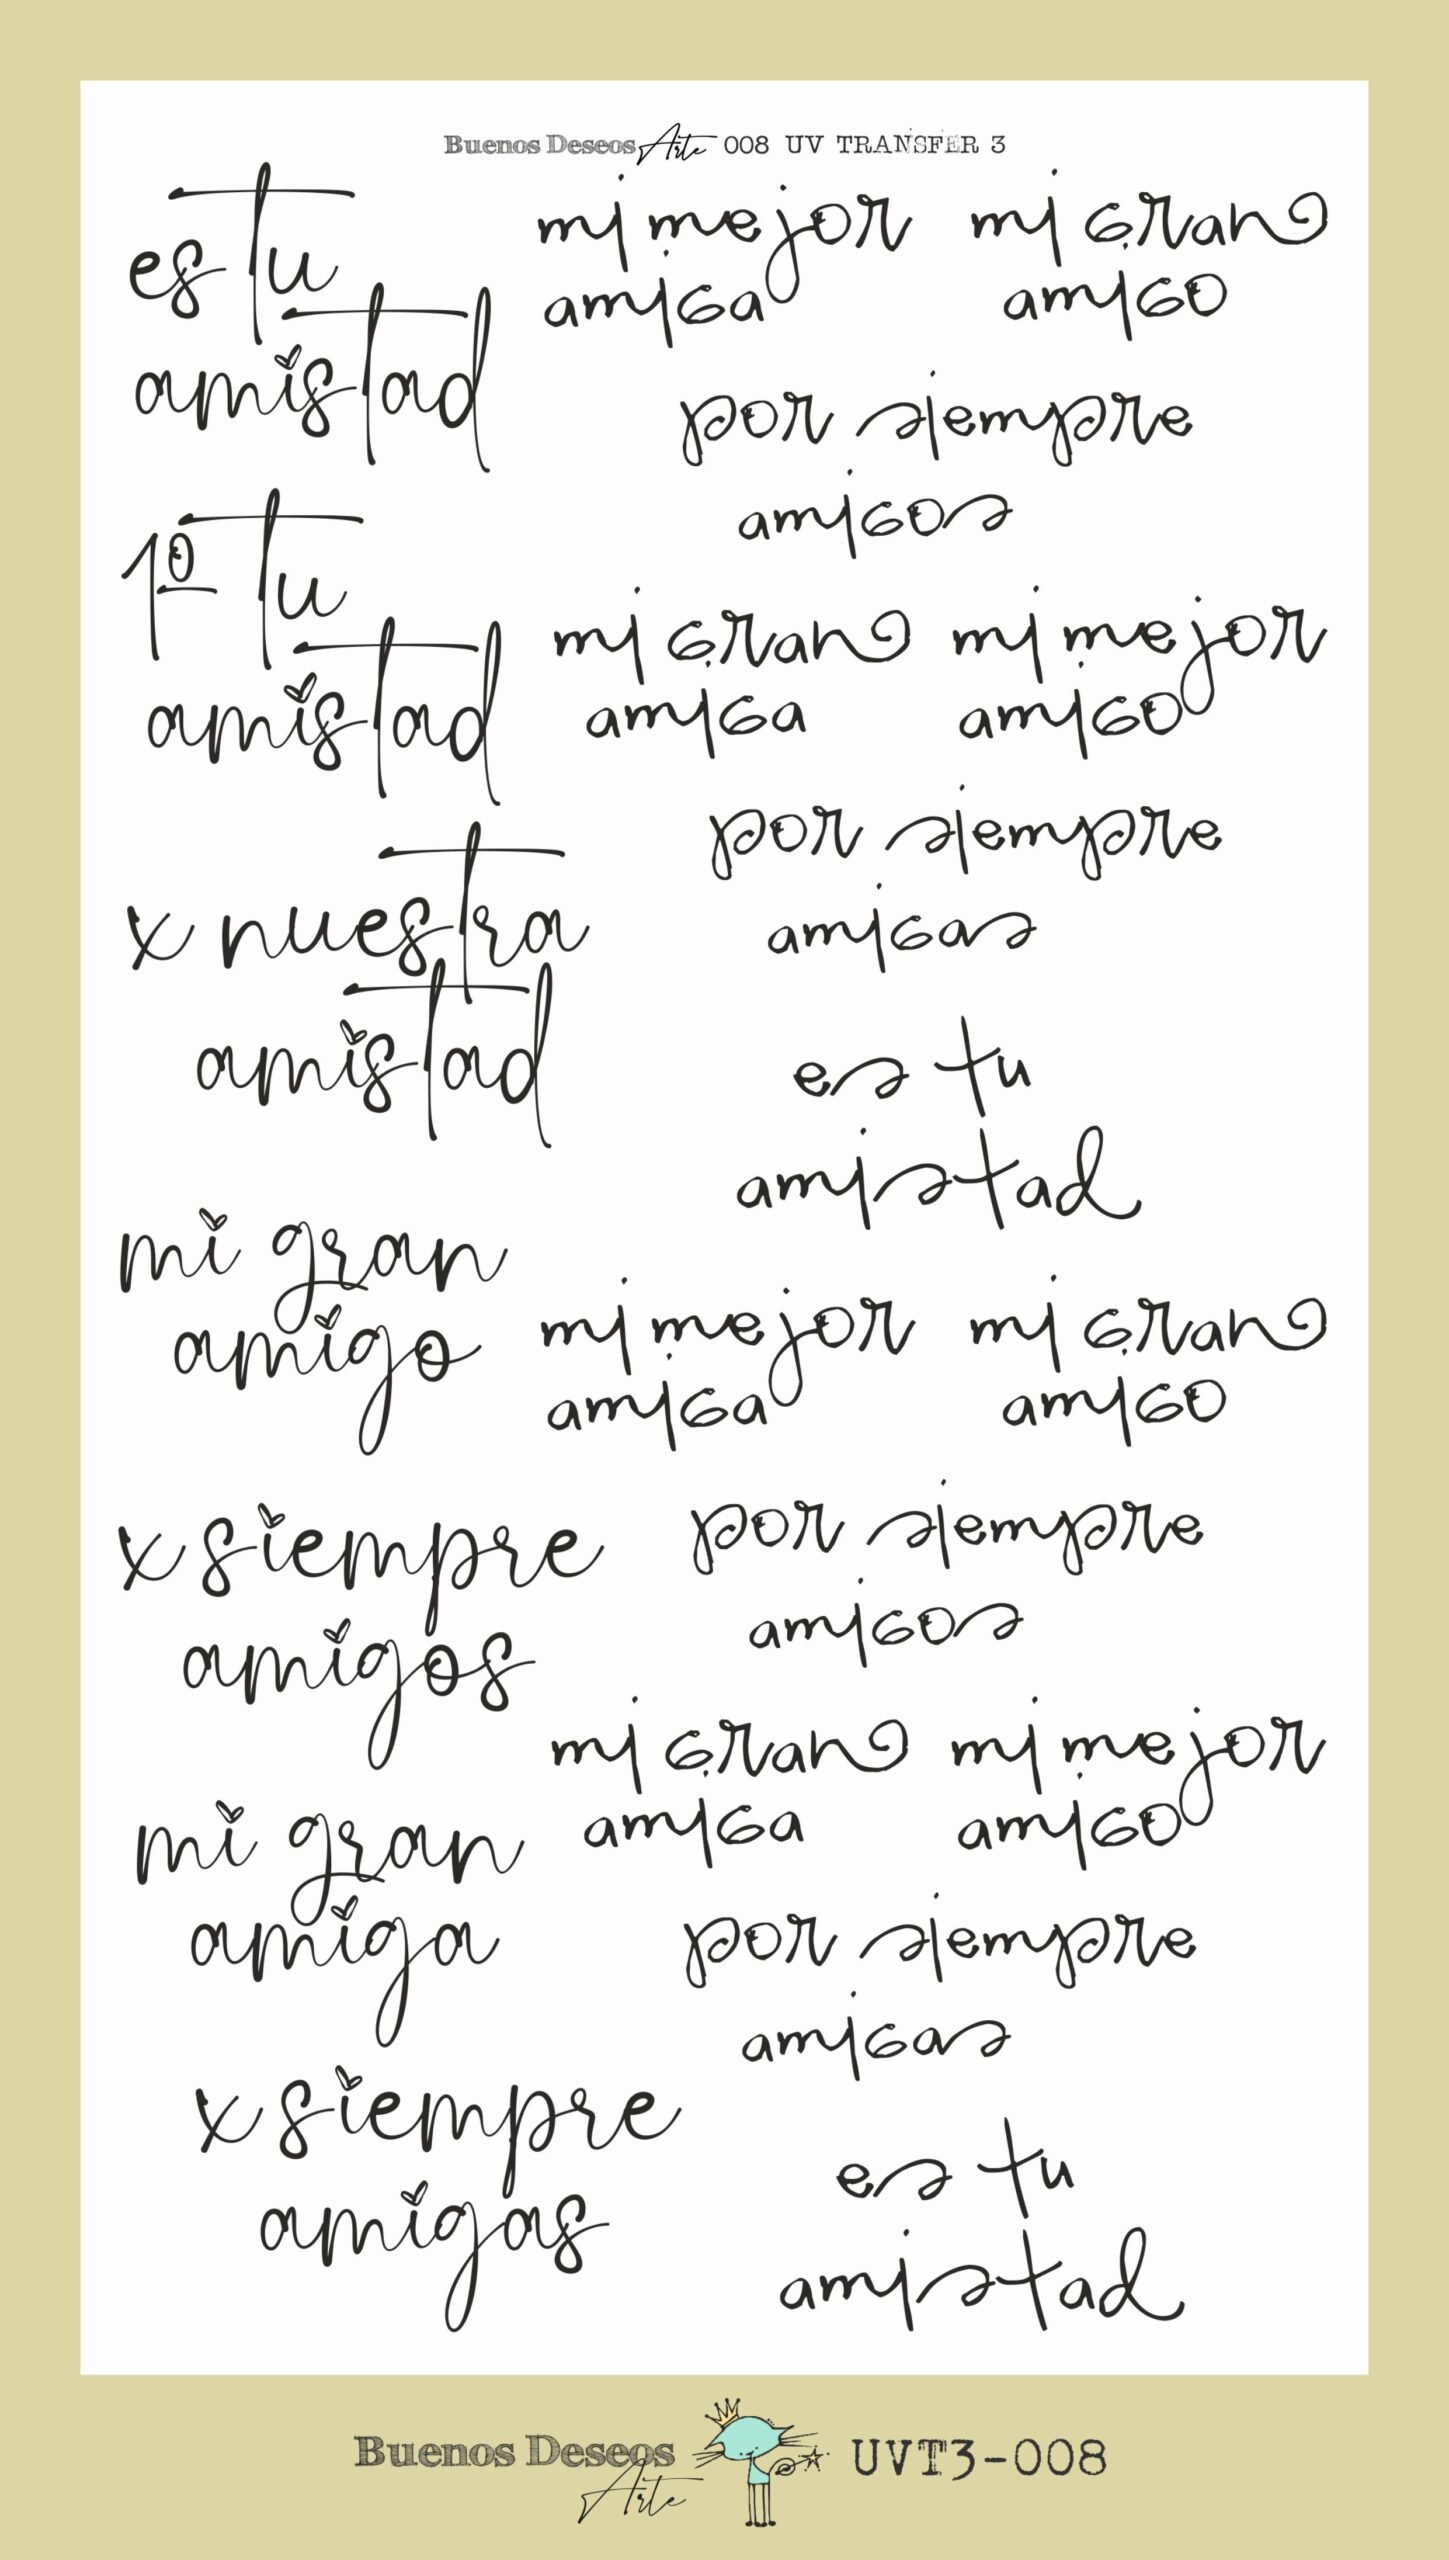 Buenos Deseos Arte 008 UV TRANSFER 3
es tu
amistad
1º tu
amistad
x nuestra
amistad
mi gran
amigo
x siempre
amigos
mi gran
amiga
x siempre
amigas
mi mejor
amiga
mi gran
amigo
por siempre
amigos
mi gran
amiga
mi mejor
amigo
por siempre
amigas
es tu
amistad
mi mejor
amiga
mi gran
amigo
por siempre
amigos
mi gran
amiga
mi mejor
amigo
por siempre
amigas
es tu
amistad
Buenos Deseos
Arte
UVT3-008